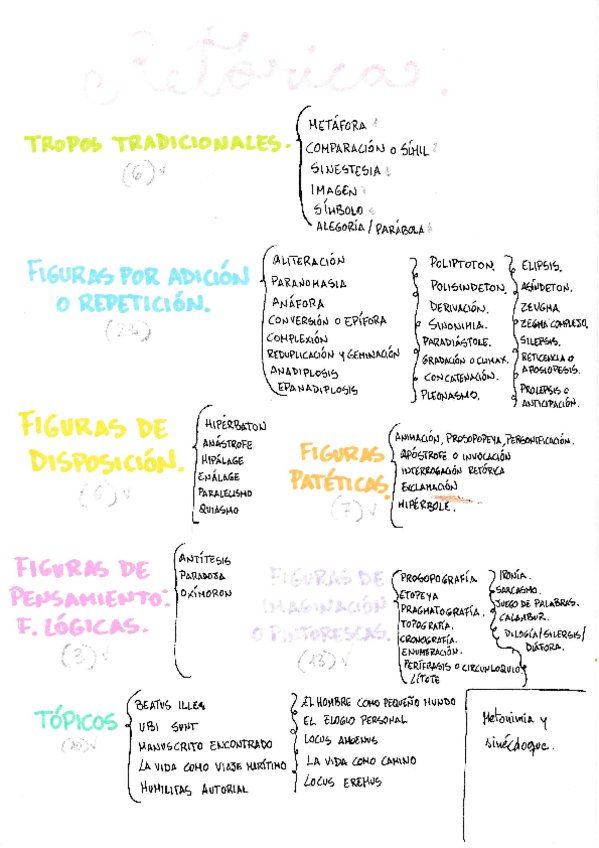 Retórica.
TROPOS TRADICIONALES.
(6)
METÁFORA
COMPARACIÓN O SÍMIL
SINESTESIA
IMAGEN
SÍMBOLO
ALEGORÍA / PARÁBOLA
FIGURAS POR ADICIÓN
O REPETICIÓN.
(23)
ALITERACIÓN
PARANOMASIA
ANÁFORA
CONVERSIÓN O EPÍFORA
COMPLEXIÓN
REDUPLICACIÓN Y GEMINACIÓN
ANADIPLOSIS
EPANADIPLOSIS
POLIPTOTON.
POLISINDETON.
DERIVACIÓN.
SINONIMIA.
PARADIÁSTOLE.
GRADACIÓN O CLIMAX.
CONCATENACIÓN.
PLEONASMO.
ELIPSIS.
ASÍNDETON.
ZEUGMA.
ZEGMA COMPLEJO.
SILEPSIS.
RETICENCIA O
APOSIOPESIS.
PROLEPSIS O
ANTICIPACIÓN.
FIGURAS DE
DISPOSICIÓN.
(6)
HIPÉRBATON
ANÁSTROFE
HIPÁLAGE
ENÁLAGE
PARALELISMO
QUIASMO
FIGURAS
PATÉTICAS.
(7)
ANIMACIÓN, PROSOPOPEYA, PERSONIFICACIÓN.
APÓSTROFE O INVOCACIÓN
INTERROGACIÓN RETÓRICA
EXCLAMACIÓN
HIPÉRBOLE.
FIGURAS DE
PENSAMIENTO:
F. LÓGICAS.
(3)
ANTÍTESIS
PARADOJA
OXÍMORON
FIGURAS DE
IMAGINACIÓN
O PINTORESCAS.
(13)
PROSOPOGRAFÍA
ETOPEYA
PRAGMATOGRAFÍA.
TOPOGRAFÍA.
CRONOGRAFÍA.
ENUMERACIÓN.
PERÍFRASIS O CIRCUNLOQUIO
LÍTOTE
IRONÍA.
SARCASMO.
JUEGO DE PALABRAS.
CALAMBUR.
DILOGÍA/SILEPSIS/
DIÁFORA.
TÓPICOS
(10)
BEATUS ILLES
UBI SUNT
MANUSCRITO ENCONTRADO
LA VIDA COMO VIAJE MARÍTIMO
HUMILITAS AUTORIAL
EL HOMBRE COMO PEQUEÑO MUNDO
EL ELOGIO PERSONAL
LOCUS AMOENUS
LA VIDA COMO CAMINO
LOCUS EREMUS
Metonimia y
sinécdoque.